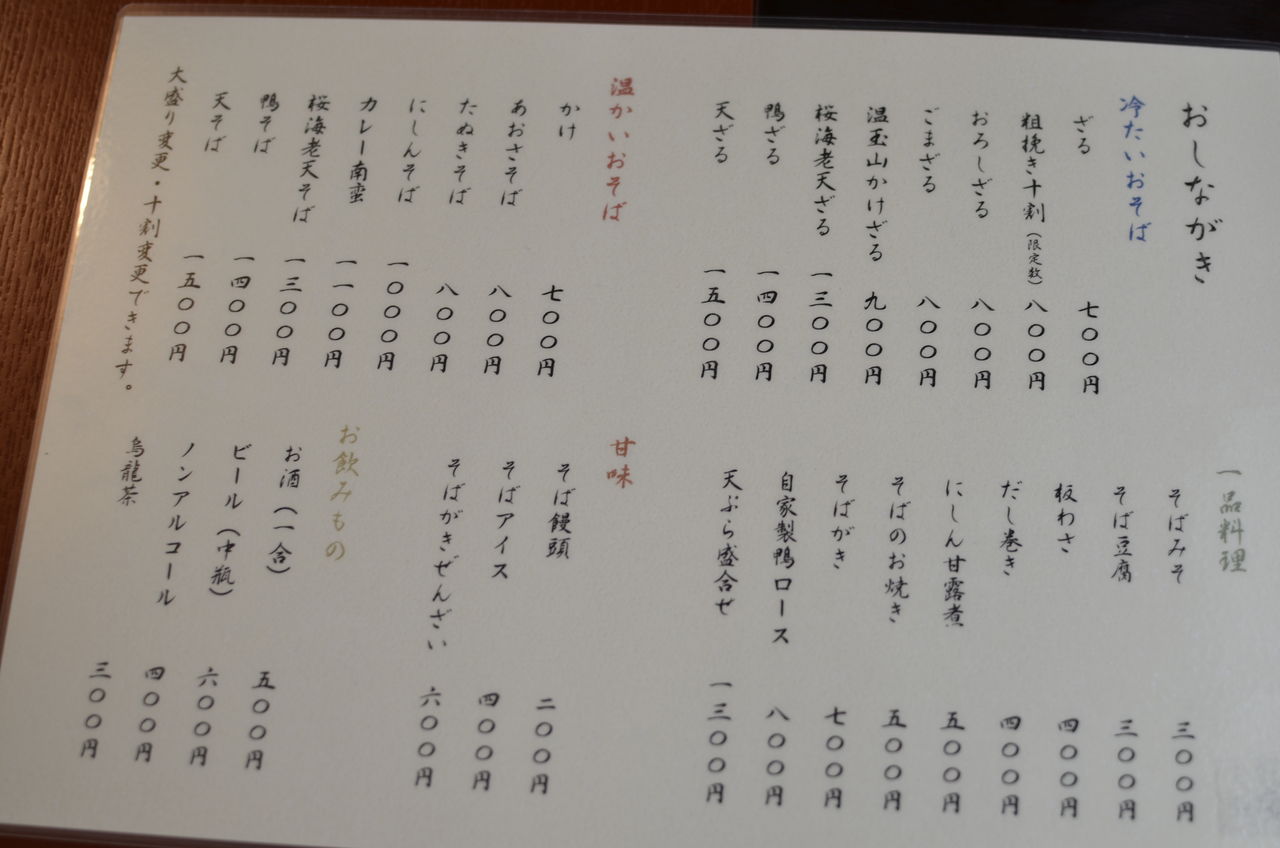 おしながき
冷たいおそば
ざる 七〇〇円
粗挽き十割（限定数） 八〇〇円
おろしざる 八〇〇円
ごまざる 八〇〇円
温玉山かけざる 九〇〇円
桜海老天ざる 一三〇〇円
鴨ざる 一四〇〇円
天ざる 一五〇〇円
温かいおそば
かけ 七〇〇円
あおさそば 八〇〇円
たぬきそば 八〇〇円
にしんそば 一〇〇〇円
カレー南蛮 一一〇〇円
桜海老天そば 一三〇〇円
鴨そば 一四〇〇円
天そば 一五〇〇円
大盛り変更・十割変更できます。
一品料理
そばみそ 三〇〇円
そば豆腐 三〇〇円
板わさ 四〇〇円
だし巻き 四〇〇円
にしん甘露煮 五〇〇円
そばのお焼き 五〇〇円
そばがき 七〇〇円
自家製鴨ロース 八〇〇円
天ぷら盛合せ 一三〇〇円
甘味
そば饅頭 二〇〇円
そばアイス 四〇〇円
そばがきぜんざい 六〇〇円
お飲みもの
お酒（一合） 五〇〇円
ビール（中瓶） 六〇〇円
ノンアルコール 四〇〇円
烏龍茶 三〇〇円